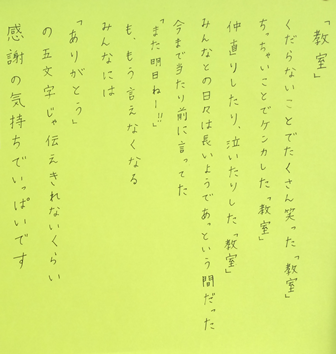 「教室」
くだらないことでたくさん笑った「教室」
ちっちゃいことでケンカした「教室」
仲直りしたり、泣いたりした「教室」
みんなとの日々は長いようであっという間だった
今まで当たり前に言ってた
「また明日ねー!!」
も、もう言えなくなる
みんなには
「ありがとう」
の五文字じゃ伝えきれないくらい
感謝の気持ちでいっぱいです